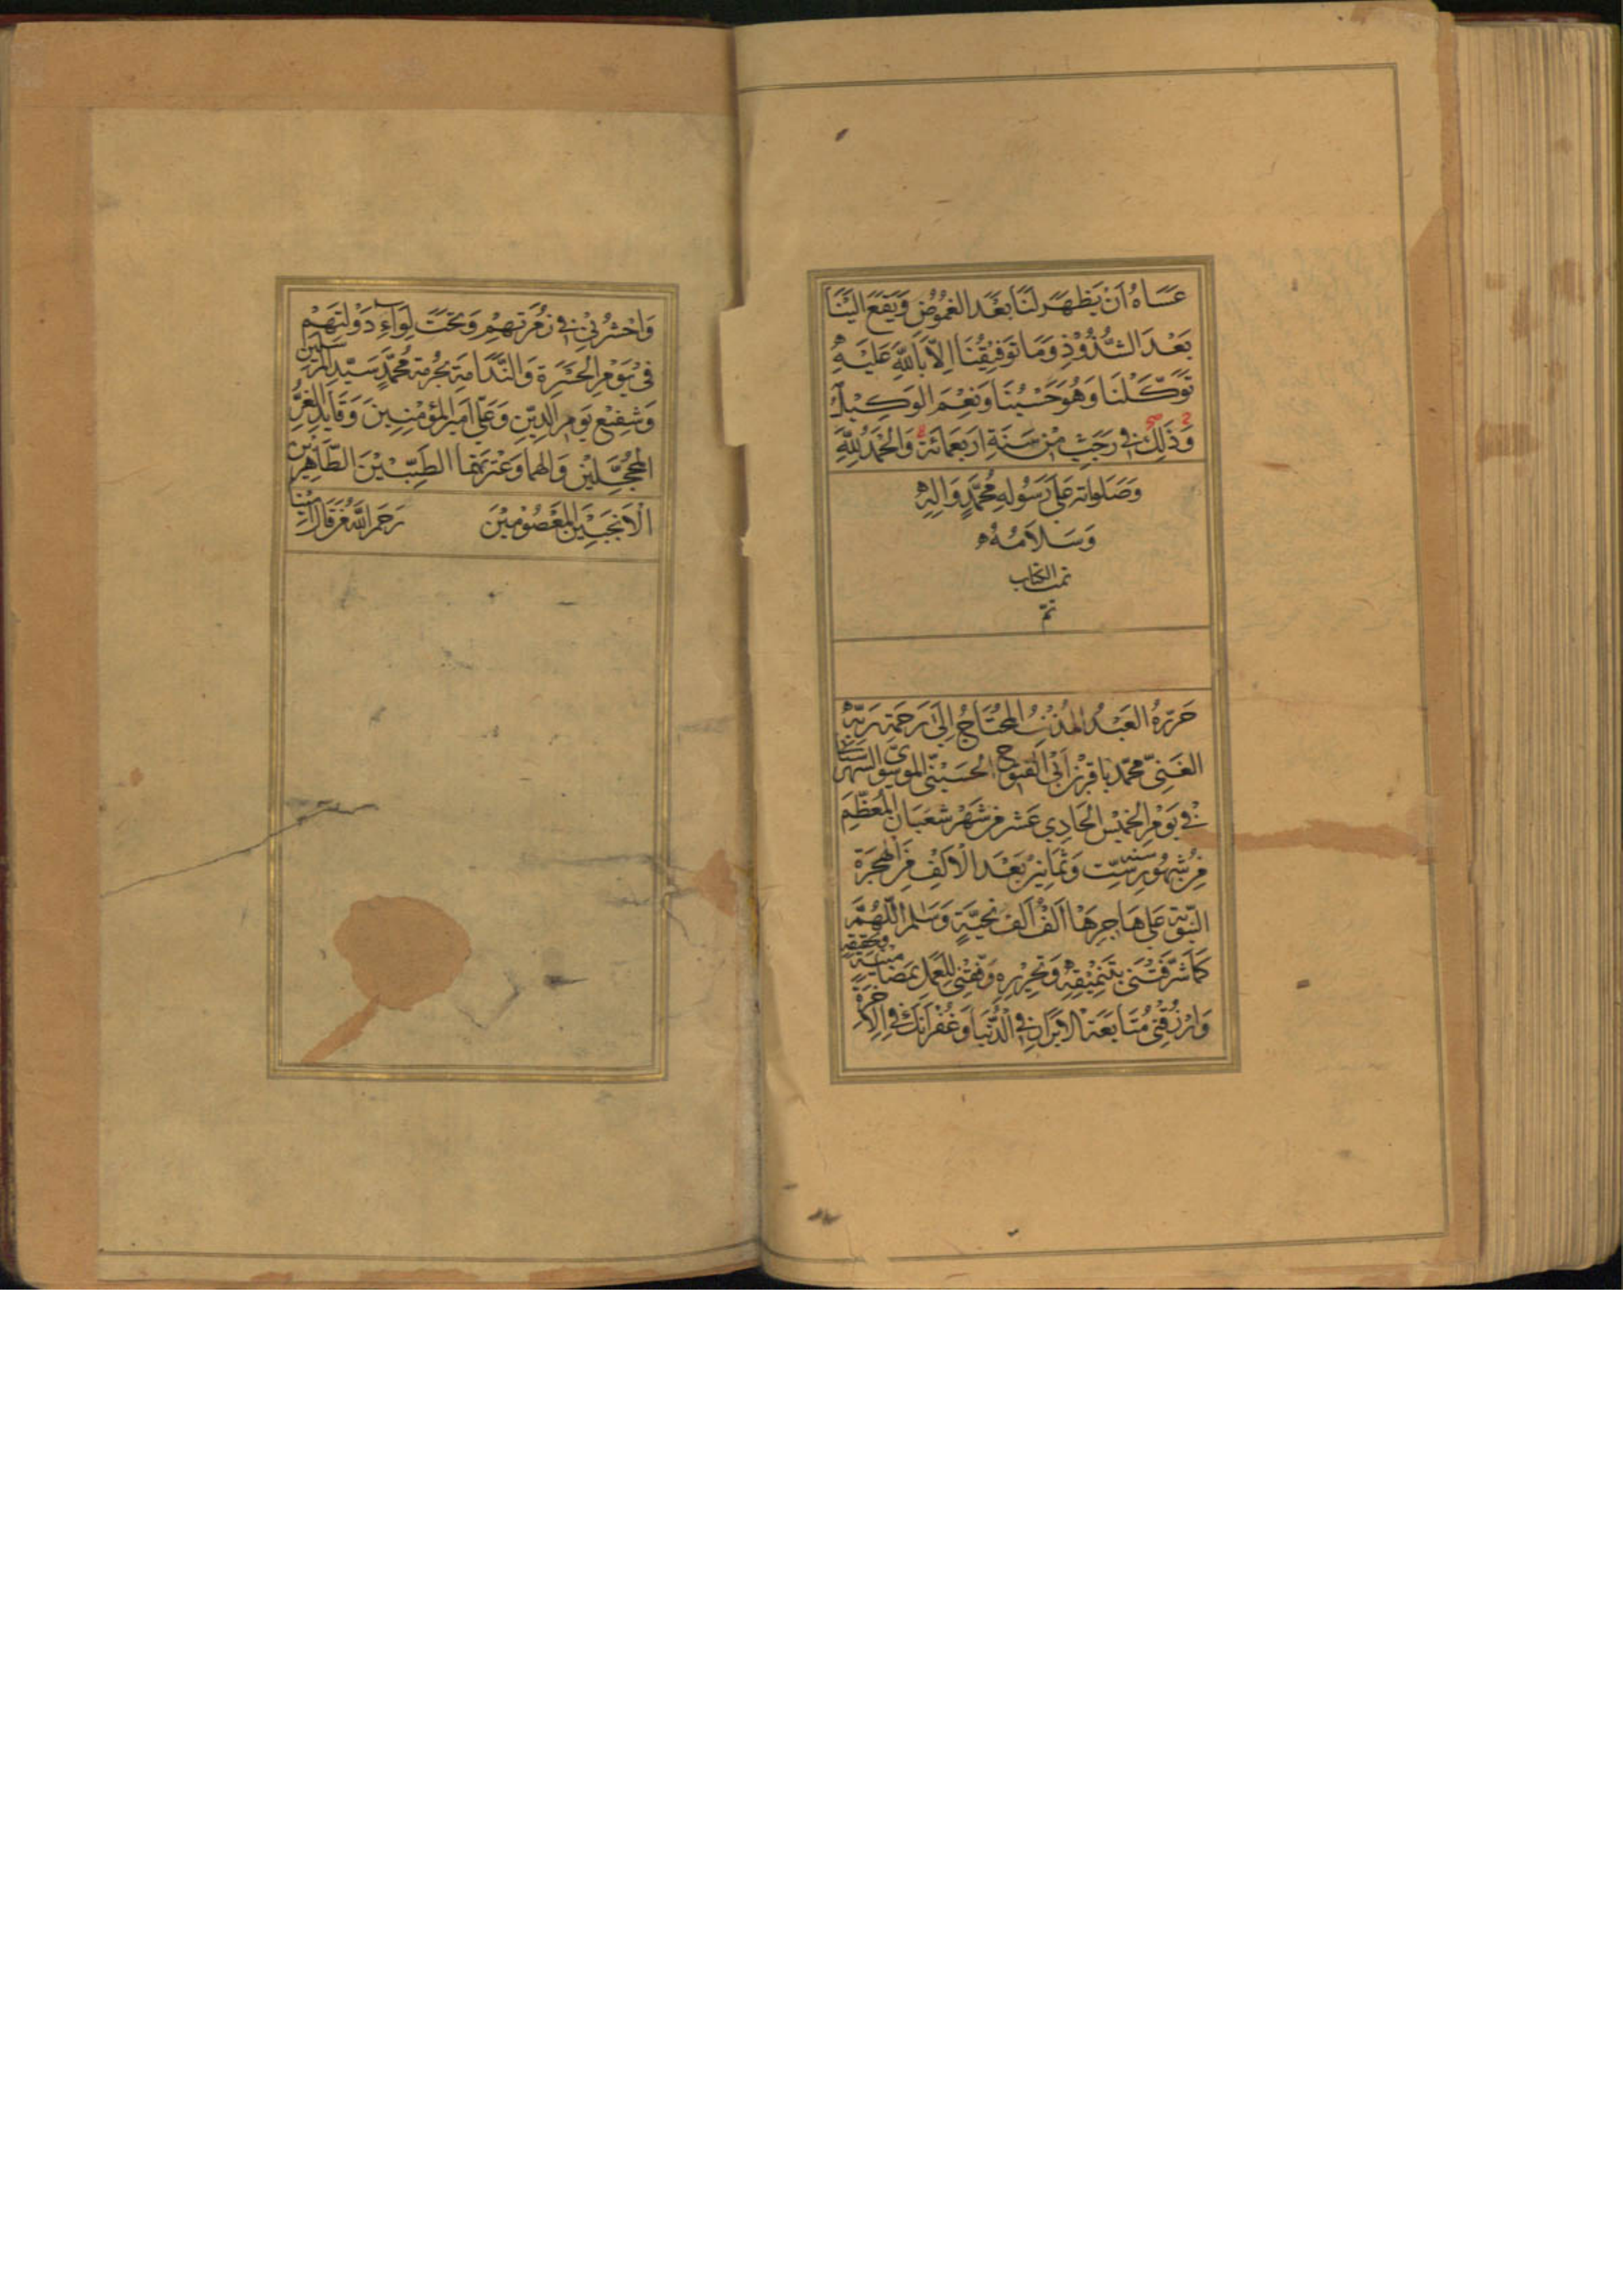 عَسَاهُ اَنْ يَظهَرَ لَنَا بَعْدَ الغمُوُضِ وَيَقَعَ اليْنَا
بَعْدَ الشُّذُوْذِ وَمَا تَوفِيْقُنَا اِلاّ بِاللّهِ عَلَيْهِ
تَوَكَّلْنَا وَهُوَ حَسْبُنَا وَنِعْمَ الوَكِيْلُ
وَذَلِكَ فِي رَجَبٍ مِنْ سَنَةِ اَرْبَعَمائَة وَالحَمْدُ لِلّهِ
وَصَلَواته عَلَى رَسُولِهِ مُحَمَّدٍ وَالِهِ
وَسَلَامُهُ
تمت الكتاب
تمّ
حَرّرَهُ العَبْدُ المُذْنِبُ المحْتَاجُ اِلَى رَحْمَةِ رَبِّهِ
الغَنِىّ محمّد بَاقِر بْن اَبى الفتوح الحُسَيْنّى الموسَوِىّ الشهرستانى
فِي يَوْمِ الخَمِيْس الحَادِي عَشر مِنْ شَهْر شَعْبَان المُعَظَّمِ
مِنْ شهُوُر سَنَه سِتّ وَثَمَانِيْنَ بَعْدَ الْاَلْفِ مِنَ الهِجْرَةِ
النّبَويّة عَلى هَاجِرِهَا اَلفُ اَلفُ تَحِيَّةٍ وَسَلام اللّهُمَّ
كَمَا شَرَّفْتَنِى بِتَنْمِيْقِهِ وَتَحْرِيْرِهِ وَفّقْنِى لِلْعَمَلِ بمَضَامِيْنِهِ وتحقيقه
وَارْزُقْنِى مُتَابَعَة الاَبْرَارِ فِي الدُّنْيَا وَغُفْرَانَكَ فِي الاخِرَةِ
وَاحْشُرْنِيْ فِي زُمْرَتِهِمْ وَتَحْتَ لِوَاءِ دَوْلَتِهِمْ
فِى يَوْمِ الحَسْرَةِ وَالنَّدَامَةِ بحُرْمَة مُحمّدٍ سَيّدِ المُرْسَلِينَ
وَشَفِيْع يَوم الدِيْنِ وَعَلَىّ اَمِيْر المؤمِنِينَ وَقَايِد الغرِّ
المُحَجَّلِيْن وَالهمَا وَعتْرتهَما الطيّبِيْنَ الطّاهِرِيْنَ
الْاَنْجَبِيْن المَعْصُوْمِيْنَ رَحِمَ اللّهُ مَنْ قَالَ امِيْنًا